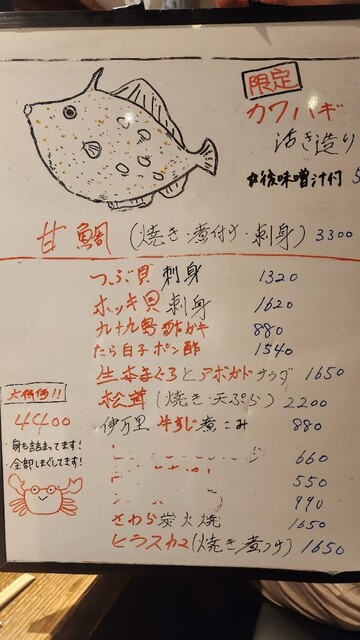 限定
カワハギ
活き造り
後味噌汁付
甘鯛 (焼き・煮付け・刺身) 3300
つぶ貝 刺身 1320
ホッキ貝 刺身 1620
九十九島 酢ガキ 880
たら白子ポン酢 1540
生本まぐろとアボガドサラダ 1650
松茸 (焼き・天ぷら) 2200
伊万里 牛すじ煮こみ 880
660
550
990
さわら炭火焼 1650
ヒラスカマ(焼き・煮つけ) 1650
4400
身も詰まってます!
全部しましてます!